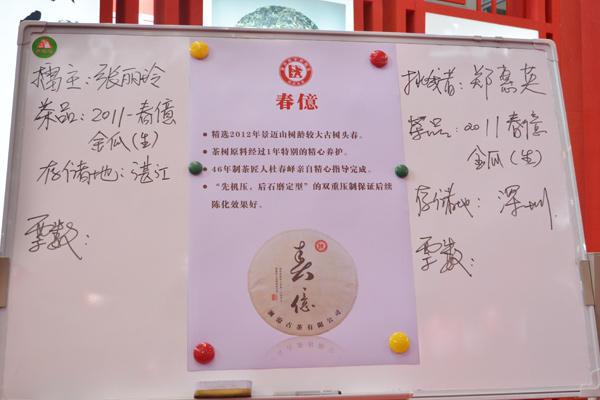 擂主：张丽玲
茶品：2011-春億
金瓜(生)
存储地：湛江
票数：
春億
精选2012年景迈山树龄较大古树头春。
茶树原料经过1年特别的精心养护。
46年制茶匠人杜春峄亲自精心指导完成。
“先机压，后石磨定型”的双重压制保证后续
陈化效果好。
春億
澜沧古茶有限公司
挑战者：郑惠英
茶品：2011春億
金瓜(生)
存储地：深圳
票数：